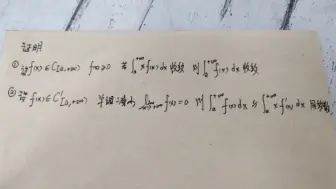 证明
① 设f(x)∈C[a,+∞) f(x)≥0 若∫ₐ^{+∞} x f(x) dx 收敛 则∫ₐ^{+∞} f(x) dx 收敛
② 设f(x)∈C'[a,+∞) 单调 lim_{x→+∞} f(x)=0 则∫ₐ^{+∞} f(x) dx 与∫ₐ^{+∞} x f'(x) dx